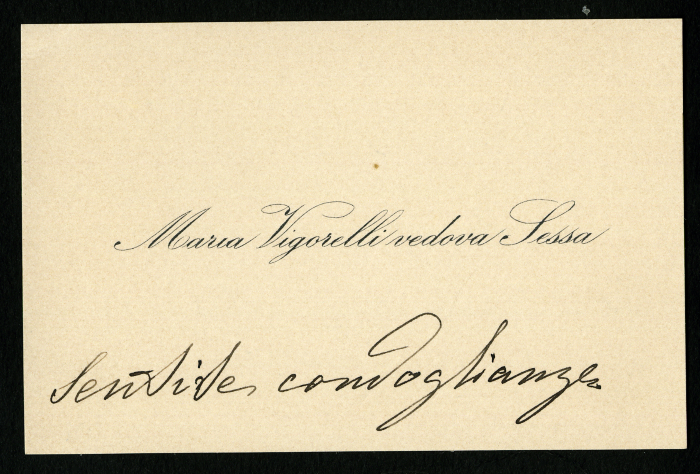 Maria Vigorelli vedova Sessa
Sentite condoglianze